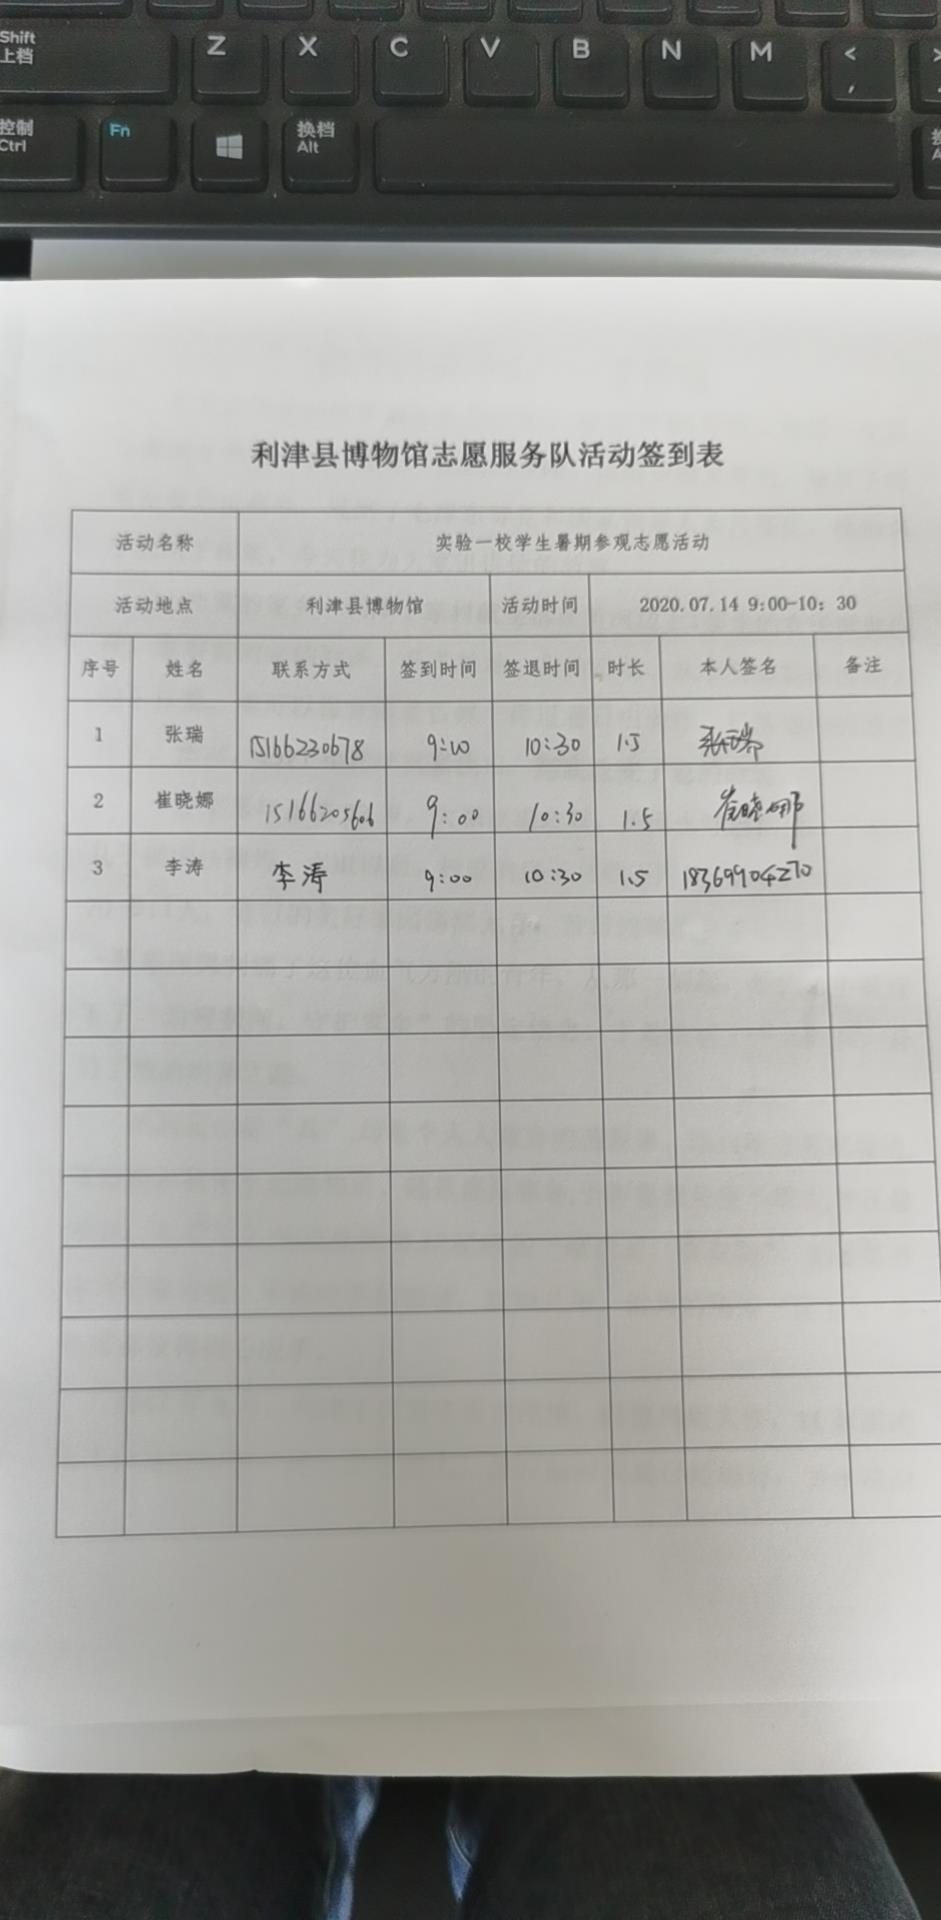 Shift
上档
Z X C V B N M < >
,
控制
Ctrl
Fn
换档
Alt
利津县博物馆志愿服务队活动签到表
活动名称 实验一校学生暑期参观志愿活动
活动地点 利津县博物馆 活动时间 2020.07.14 9:00-10:30
序号 姓名 联系方式 签到时间 签退时间 时长 本人签名 备注
1 张瑞 15166230678 9:00 10:30 1.5 张瑞
2 崔晓娜 15166205606 9:00 10:30 1.5 崔晓娜
3 李涛 李涛 9:00 10:30 1.5 18369904270